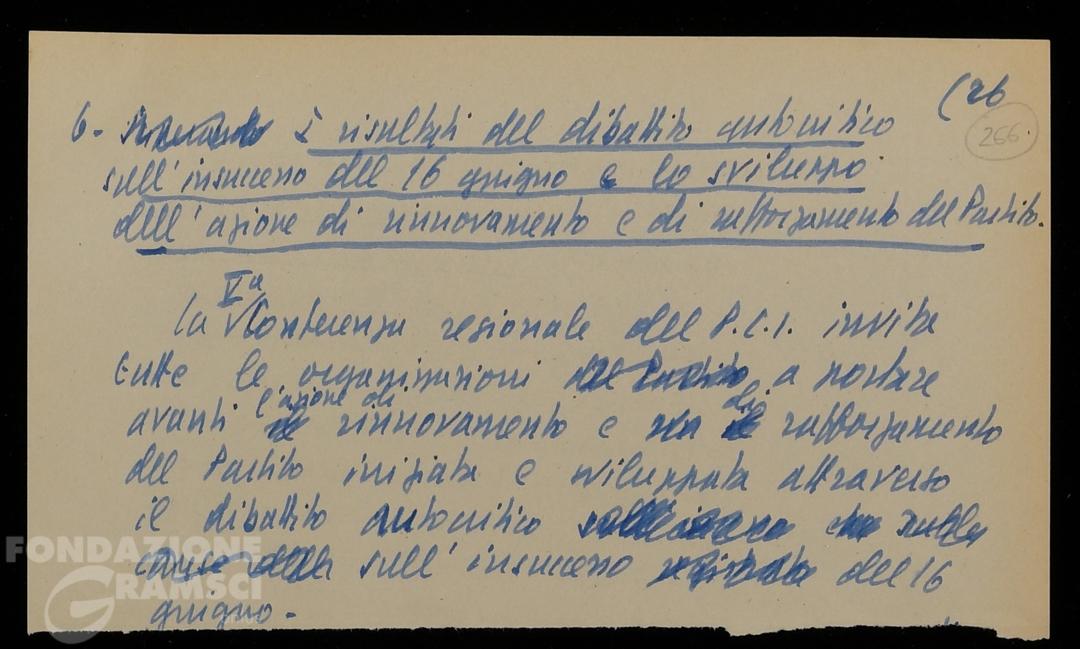 (26
266.
6- I risultati del dibattito autocritico
sull'insuccesso del 16 giugno e lo sviluppo
dell'azione di rinnovamento e di rafforzamento del Partito.
Va
La Conferenza regionale del P.C.I. invita
tutte le organizzazioni a portare
l'azione di di
avanti rinnovamento e rafforzamento
del Partito iniziata e sviluppata attraverso
il dibattito autocritico
sull'insuccesso del 16
giugno-
FONDAZIONE
GRAMSCI